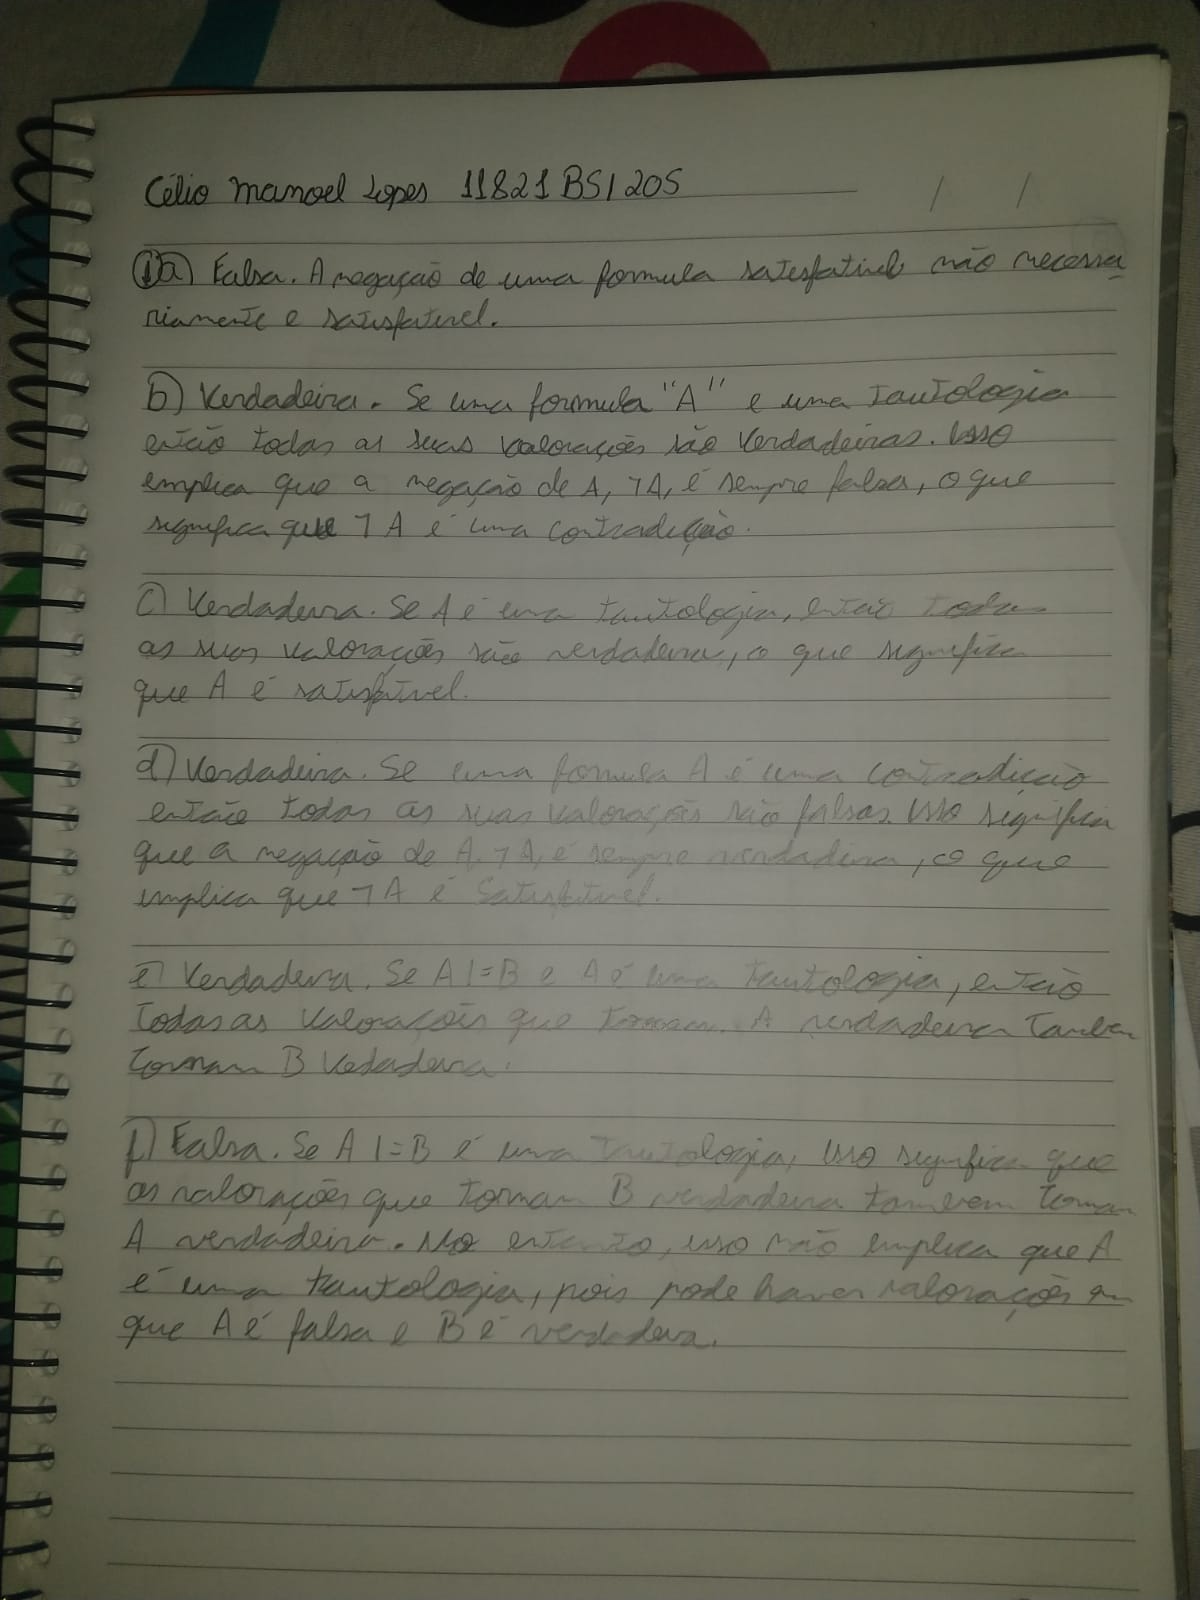 Célio Manoel Lopes 11821BSI205
/ /
1a) Falsa. A negação de uma formula satesfativel não necessa-
riamente e satisfativel.
b) Verdadeira. Se uma formula "A" e uma Tautologia
então todas as suas valorações são verdadeiras. Isso
emplica que a negação de A, ¬A, é sempre falsa, o que
significa que ¬A é uma contradição.
c) Verdadeira. Se A é uma tautologia, então todas
as suas valorações são verdadeira, o que significa
que A é satisfativel.
d) Verdadeira. Se uma formula A é uma contradição
então todas as suas valorações são falsas. Isso significa
que a negação de A, ¬A, é sempre verdadeira, o que
implica que ¬A é Satisfativel.
e) Verdadeira. Se A |= B e A é uma tautologia, então
todas as valorações que tornam A verdadeira
tornam B Vedadeira.
f) Falsa. Se A |= B é uma tautologia, isso significa que
as valorações que tornam B verdadeira tambem tornam
A verdadeira. No entanto, isso não emplica que A
é uma tautologia, pois pode haver valorações em
que A é falsa e B é verdadeira.